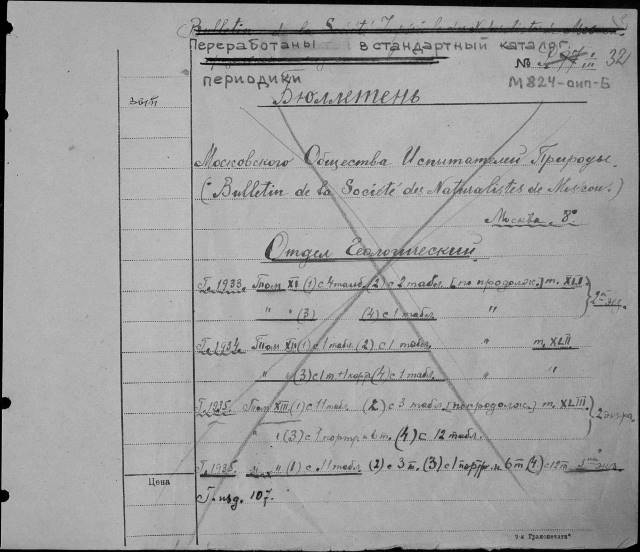 Bulletin de la Société des Naturalistes de Moscou.
Переработаны в стандартный каталог
№ 32
периодики М 824-оип-Б
Бюллетень
Московского Общества Испытателей Природы.
(Bulletin de la Société des Naturalistes de Moscou.)
Москва 8º
Отдел Геологический.
Г. 1933. Том XI (1) с 4 табл. (2) с 2 табл. [по продолж.] т. XLI
" " (3) (4) с 1 табл. " 2 экз.
Г. 1934. Том XII (1) с 1 табл. (2) с 1 табл. " т. XLII
" " (3) с 1 т + 1 карт (4) с 1 табл. " "
Г. 1935. Том XIII (1) с 11 табл. (2) с 3 табл. [по продолж.] т. XLIII.
" (3) с 1 портр. и 6 т. (4) с 12 табл. 2 экз.
Г. 1935. " (1) с 11 табл (2) с 3 т. (3) с 1 портр и 6 т (4) с 12 т
Цена
Г. изд. 107.